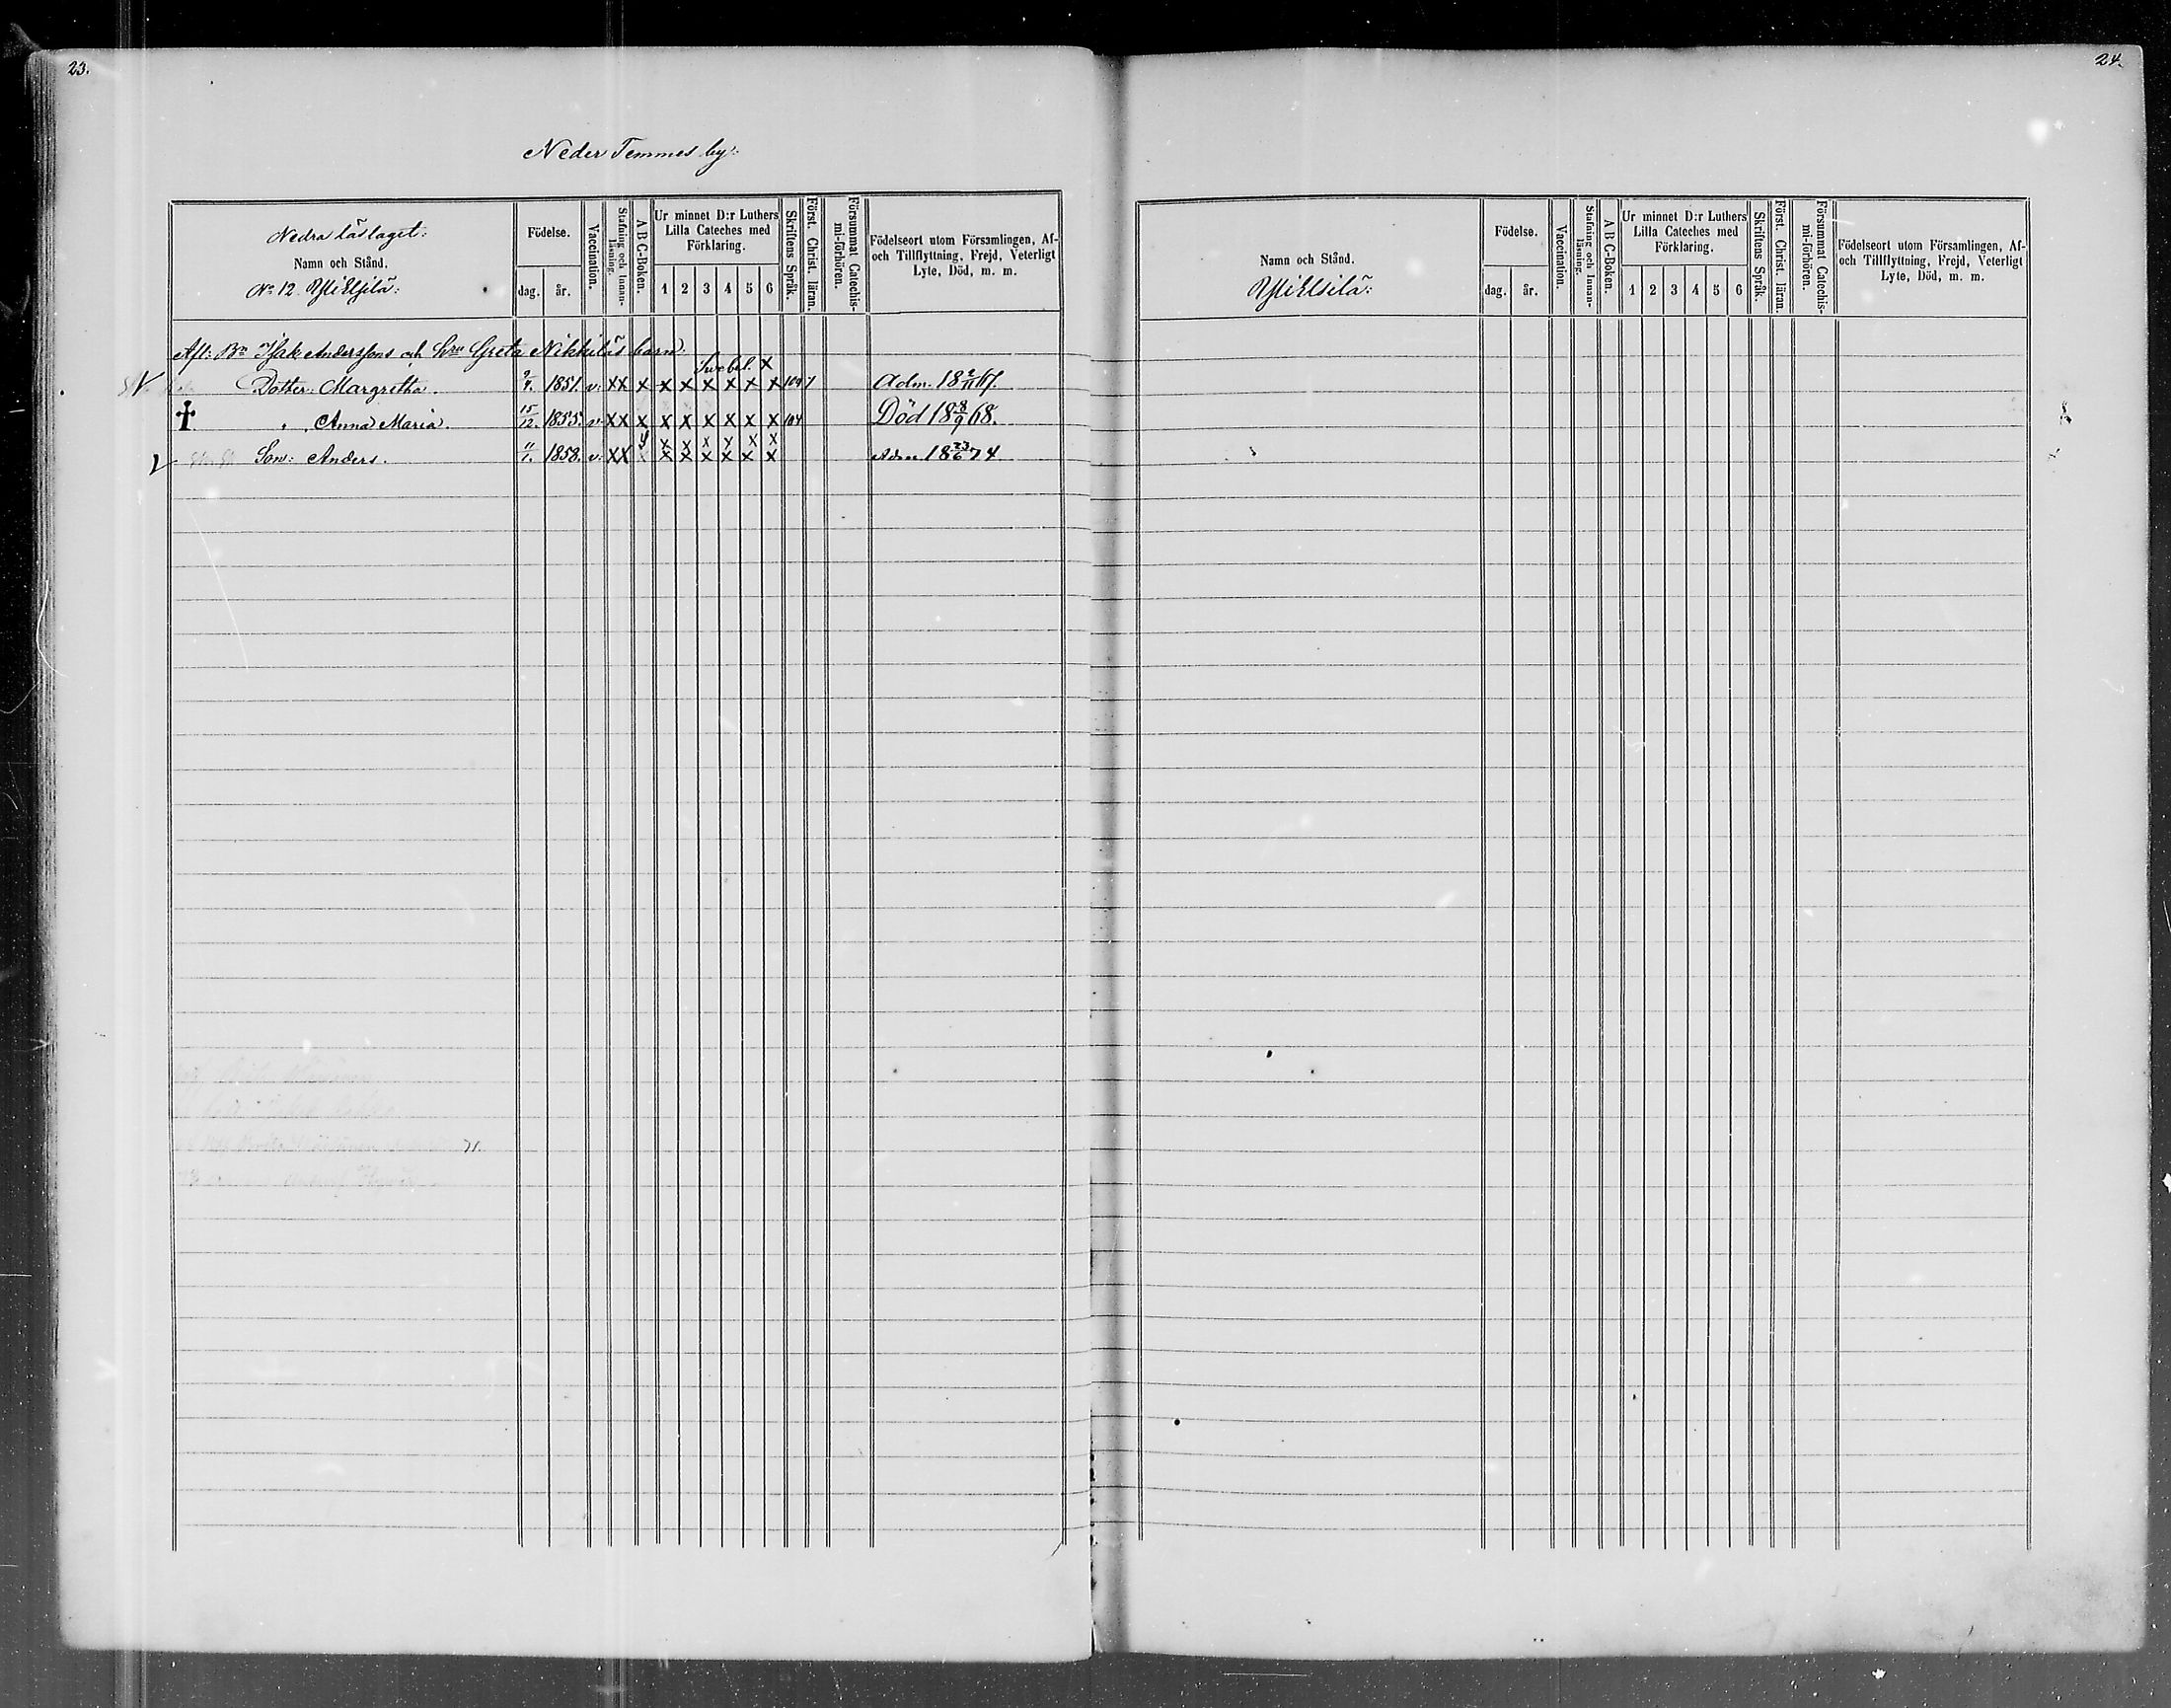 23.
Neder Temmes by:
Nedra läslaget:
Namn och Stånd.
No 12.
Födelse.
dag. år.
Vaccination.
Stafning och Innanläsning.
A B C-Boken.
Ur minnet D:r Luthers Lilla Cateches med Förklaring.
1 2 3 4 5 6
Skriftens Språk.
Först. Christ. läran.
Försummat Catechismi-förhören.
Födelseort utom Församlingen, Af- och Tillflyttning, Frejd, Veterligt Lyte, Död, m. m.
Afl: Bn Isak Anderssons och hru Greta Nikkiläs barn.
Dotter: Margretha. 1851. v. XX X X X X X X X Adm. 18 2/11 67.
† " Anna Maria. 15/12. 1855. v. XX X X X X X X X 104 Död 18 8/9 68.
Son: Anders. 11/1. 1858. v. XX X X X X X X Adm. 18 23/6 74
71.
24.
Namn och Stånd.
Födelse.
dag. år.
Vaccination.
Stafning och Innanläsning.
A B C-Boken.
Ur minnet D:r Luthers Lilla Cateches med Förklaring.
1 2 3 4 5 6
Skriftens Språk.
Först. Christ. läran.
Försummat Catechismi-förhören.
Födelseort utom Församlingen, Af- och Tillflyttning, Frejd, Veterligt Lyte, Död, m. m.